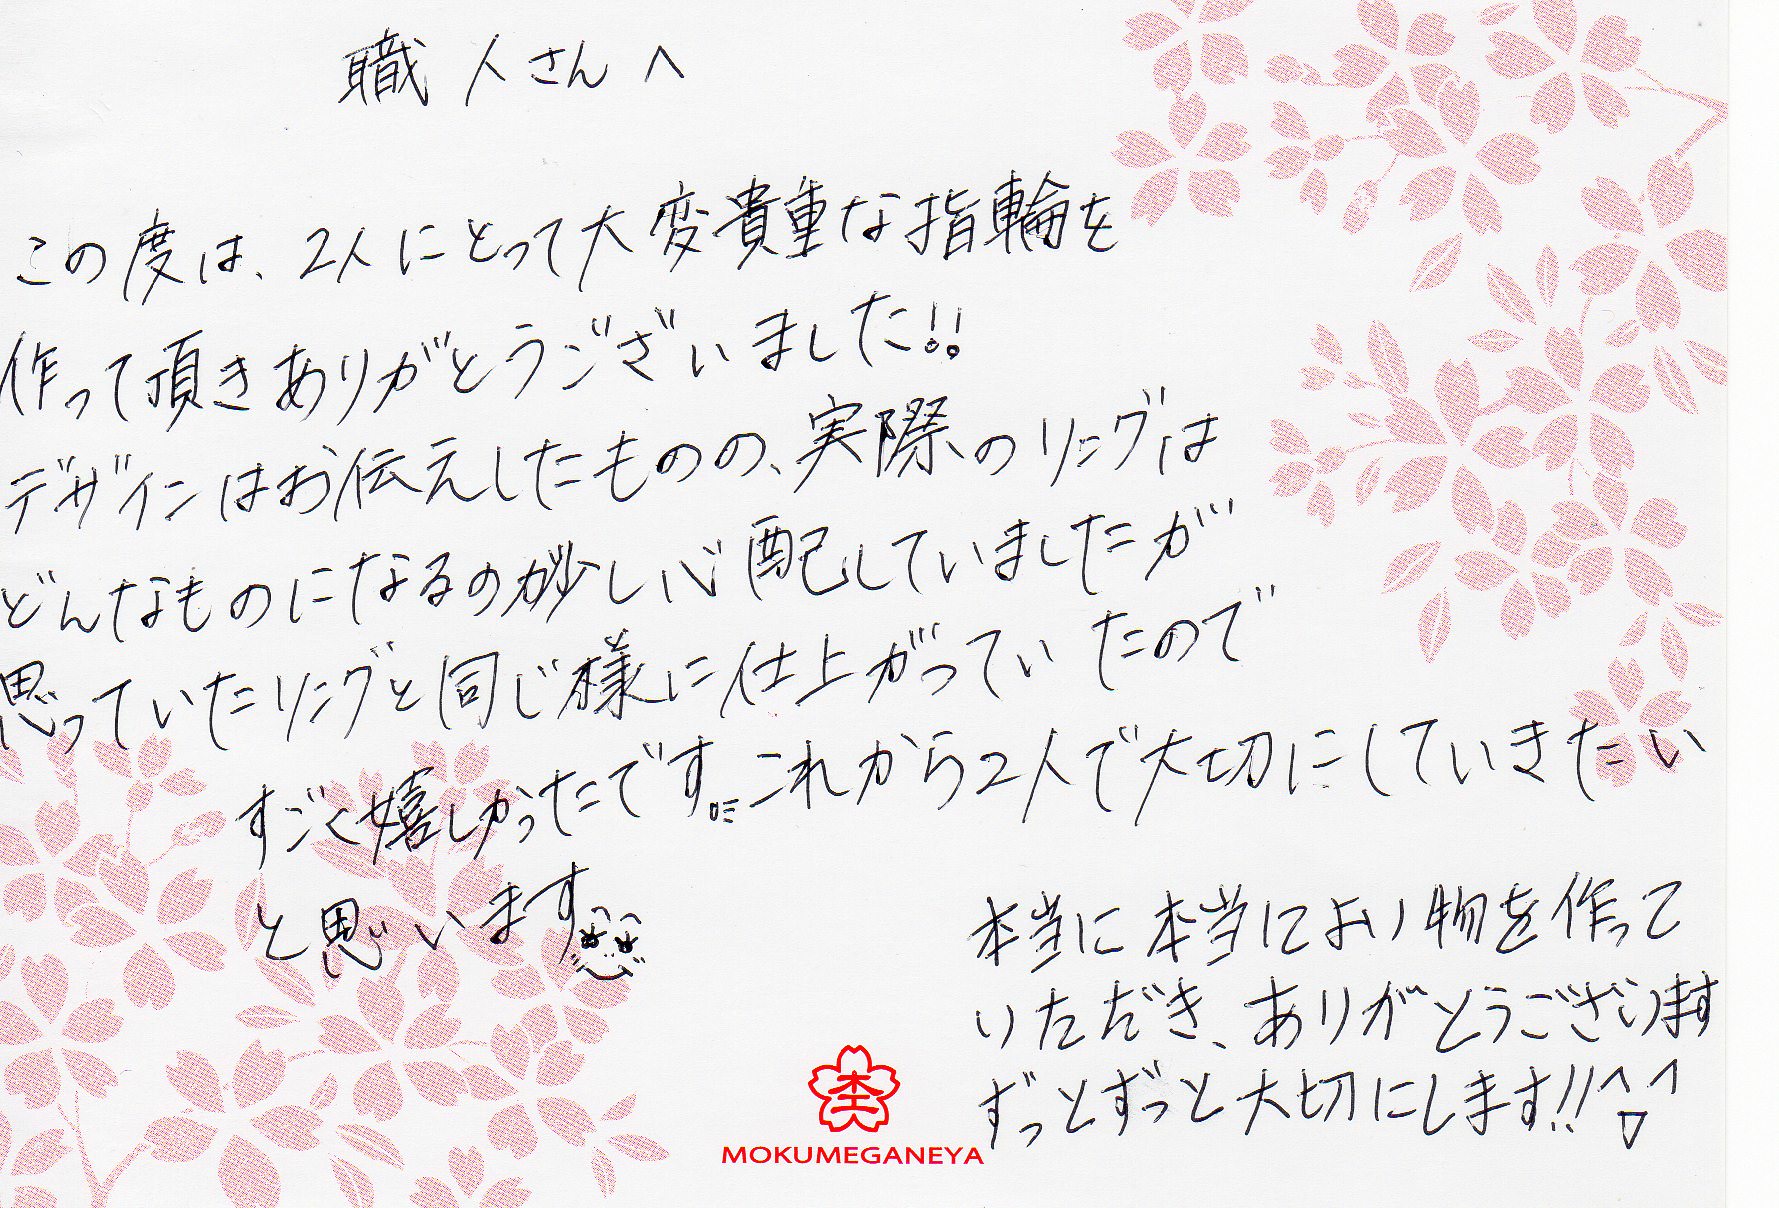 職人さんへ
この度は、2人にとって大変貴重な指輪を
作って頂きありがとうございました!!
デザインはお伝えしたものの、実際のリングは
どんなものになるのか少し心配していましたが
思っていたリングと同じ様に仕上がっていたので
すごく嬉しかったです。これから2人で大切にしていきたい
と思います
本当に本当によい物を作って
いただき、ありがとうございます
ずっとずっと大切にします!!^▽^
MOKUMEGANEYA